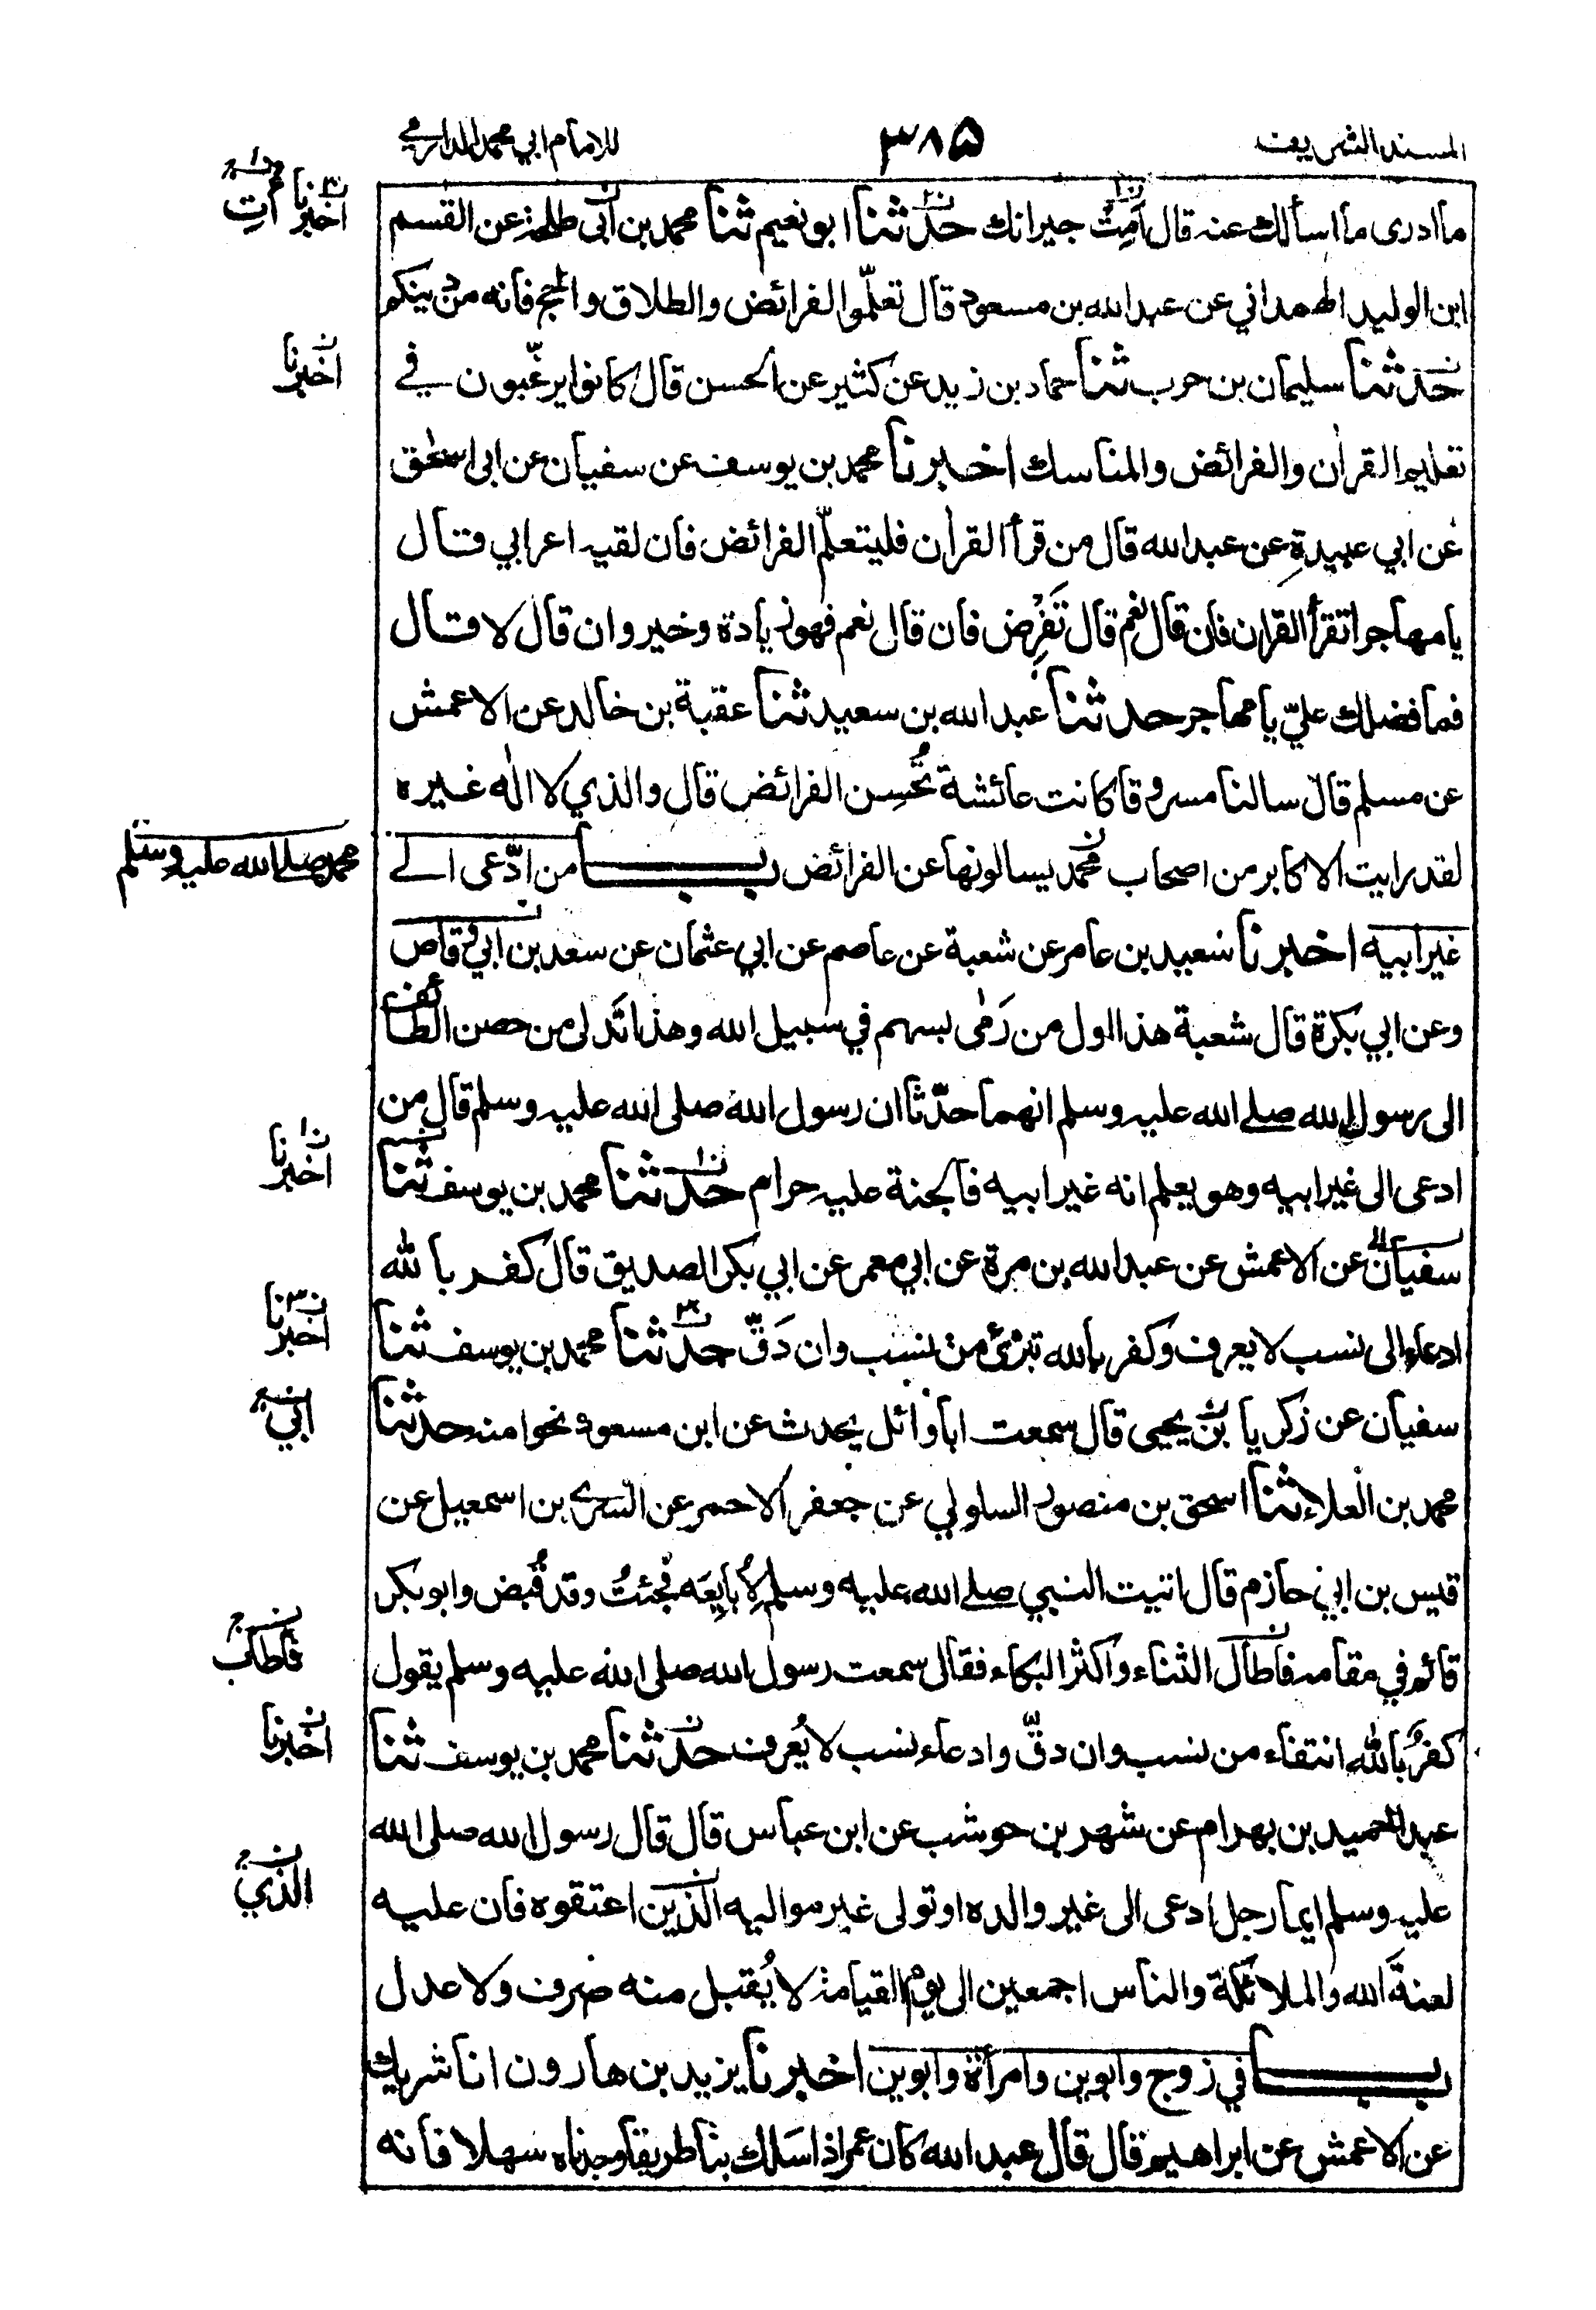 المسند الشريف ٣٨٥ للامام ابي محمد الدارمي
ما ادرى ما اسألك عنه قال اَمِتْ جيرانك حدثنا ابو نعيم ثنا محمد بن ابى طلحة عن القسم
ابن الوليد الهمداني عن عبد الله بن مسعود قال تعلّموا الفرائض والطلاق والحج فانه من دينكم
حدثنا سليمان بن حرب ثنا حماد بن زيد عن كثير عن الحسن قال كانوا يرغّبون في
تعليم القراٰن والفرائض والمناسك اخبرنا محمد بن يوسف عن سفيان عن ابى اسحٰق
عن ابي عبيدة عن عبد الله قال من قرأ القراٰن فليتعلّم الفرائض فان لقيه اعرابي قال
يا مهاجر اتقرأ القراٰن فان قال نعم قال تَفْرِض فان قال نعم فهو زيادة وخير وان قال لا قال
فما فضلك عليّ يا مهاجر حدثنا عبد الله بن سعيد ثنا عقبة بن خالد عن الاعمش
عن مسلم قال سالنا مسروقا كانت عائشة تُحْسِن الفرائض قال والذي لا الٰه غيره
لقد رايت الاكابر من اصحاب محمد يسالونها عن الفرائض باب من ادّعى الى
غير ابيه اخبرنا سعيد بن عامر عن شعبة عن عاصم عن ابي عثمان عن سعد بن ابي وقاص
وعن ابي بكرة قال شعبة هذا اول من رَمٰى بسهم في سبيل الله وهذا تَدلى من حصن الطائف
الى رسول الله صلى الله عليه وسلم انهما حدّثا ان رسول الله صلى الله عليه وسلم قال من
ادعى الى غير ابيه وهو يعلم انه غير ابيه فالجنة عليه حرام حدثنا محمد بن يوسف ثنا
سفيان عن الاعمش عن عبد الله بن مرة عن ابي معمر عن ابي بكر الصديق قال كفر بالله
ادعاء الى نسب لا يعرف وكفر بالله تبرئ من نسب وان دَقّ حدثنا محمد بن يوسف ثنا
سفيان عن زكريا بن يحيى قال سمعت ابا وائل يحدث عن ابن مسعود نحوا منه حدثنا
محمد بن العلاء ثنا اسحق بن منصور السلولي عن جعفر الاحمر عن السري بن اسمعيل عن
قيس بن ابي حازم قال اتيت النبي صلى الله عليه وسلم لِاُبايِعَه فجئتُ وقد قُبض وابو بكر
قائم في مقامه فاطال الثناء واكثر البكاء فقال سمعت رسول الله صلى الله عليه وسلم يقول
كفرٌ بالله انتفاء من نسب وان دقّ وادعاء نسب لا يُعرف حدثنا محمد بن يوسف ثنا
عبد الحميد بن بهرام عن شهر بن حوشب عن ابن عباس قال قال رسول الله صلى الله
عليه وسلم ايما رجل ادعى الى غير والده او تولى غير مواليه الذين اعتقوه فان عليه
لعنةَ الله والملائكة والناس اجمعين الى يوم القيامة لا يُقبل منه صرف ولا عدل
باب في زوج وابوين وامرأة وابوين اخبرنا يزيد بن هارون انا شريك
عن الاعمش عن ابراهيم قال قال عبد الله كان عمر اذا سَلك بنا طريقا وجدناه سهلا فانه
اخبرنا
اخبرنا
محمد صلى الله عليه وسلم
اخبرنا
اخبرنا
ابي
فاطاب
اخبرنا
الذي